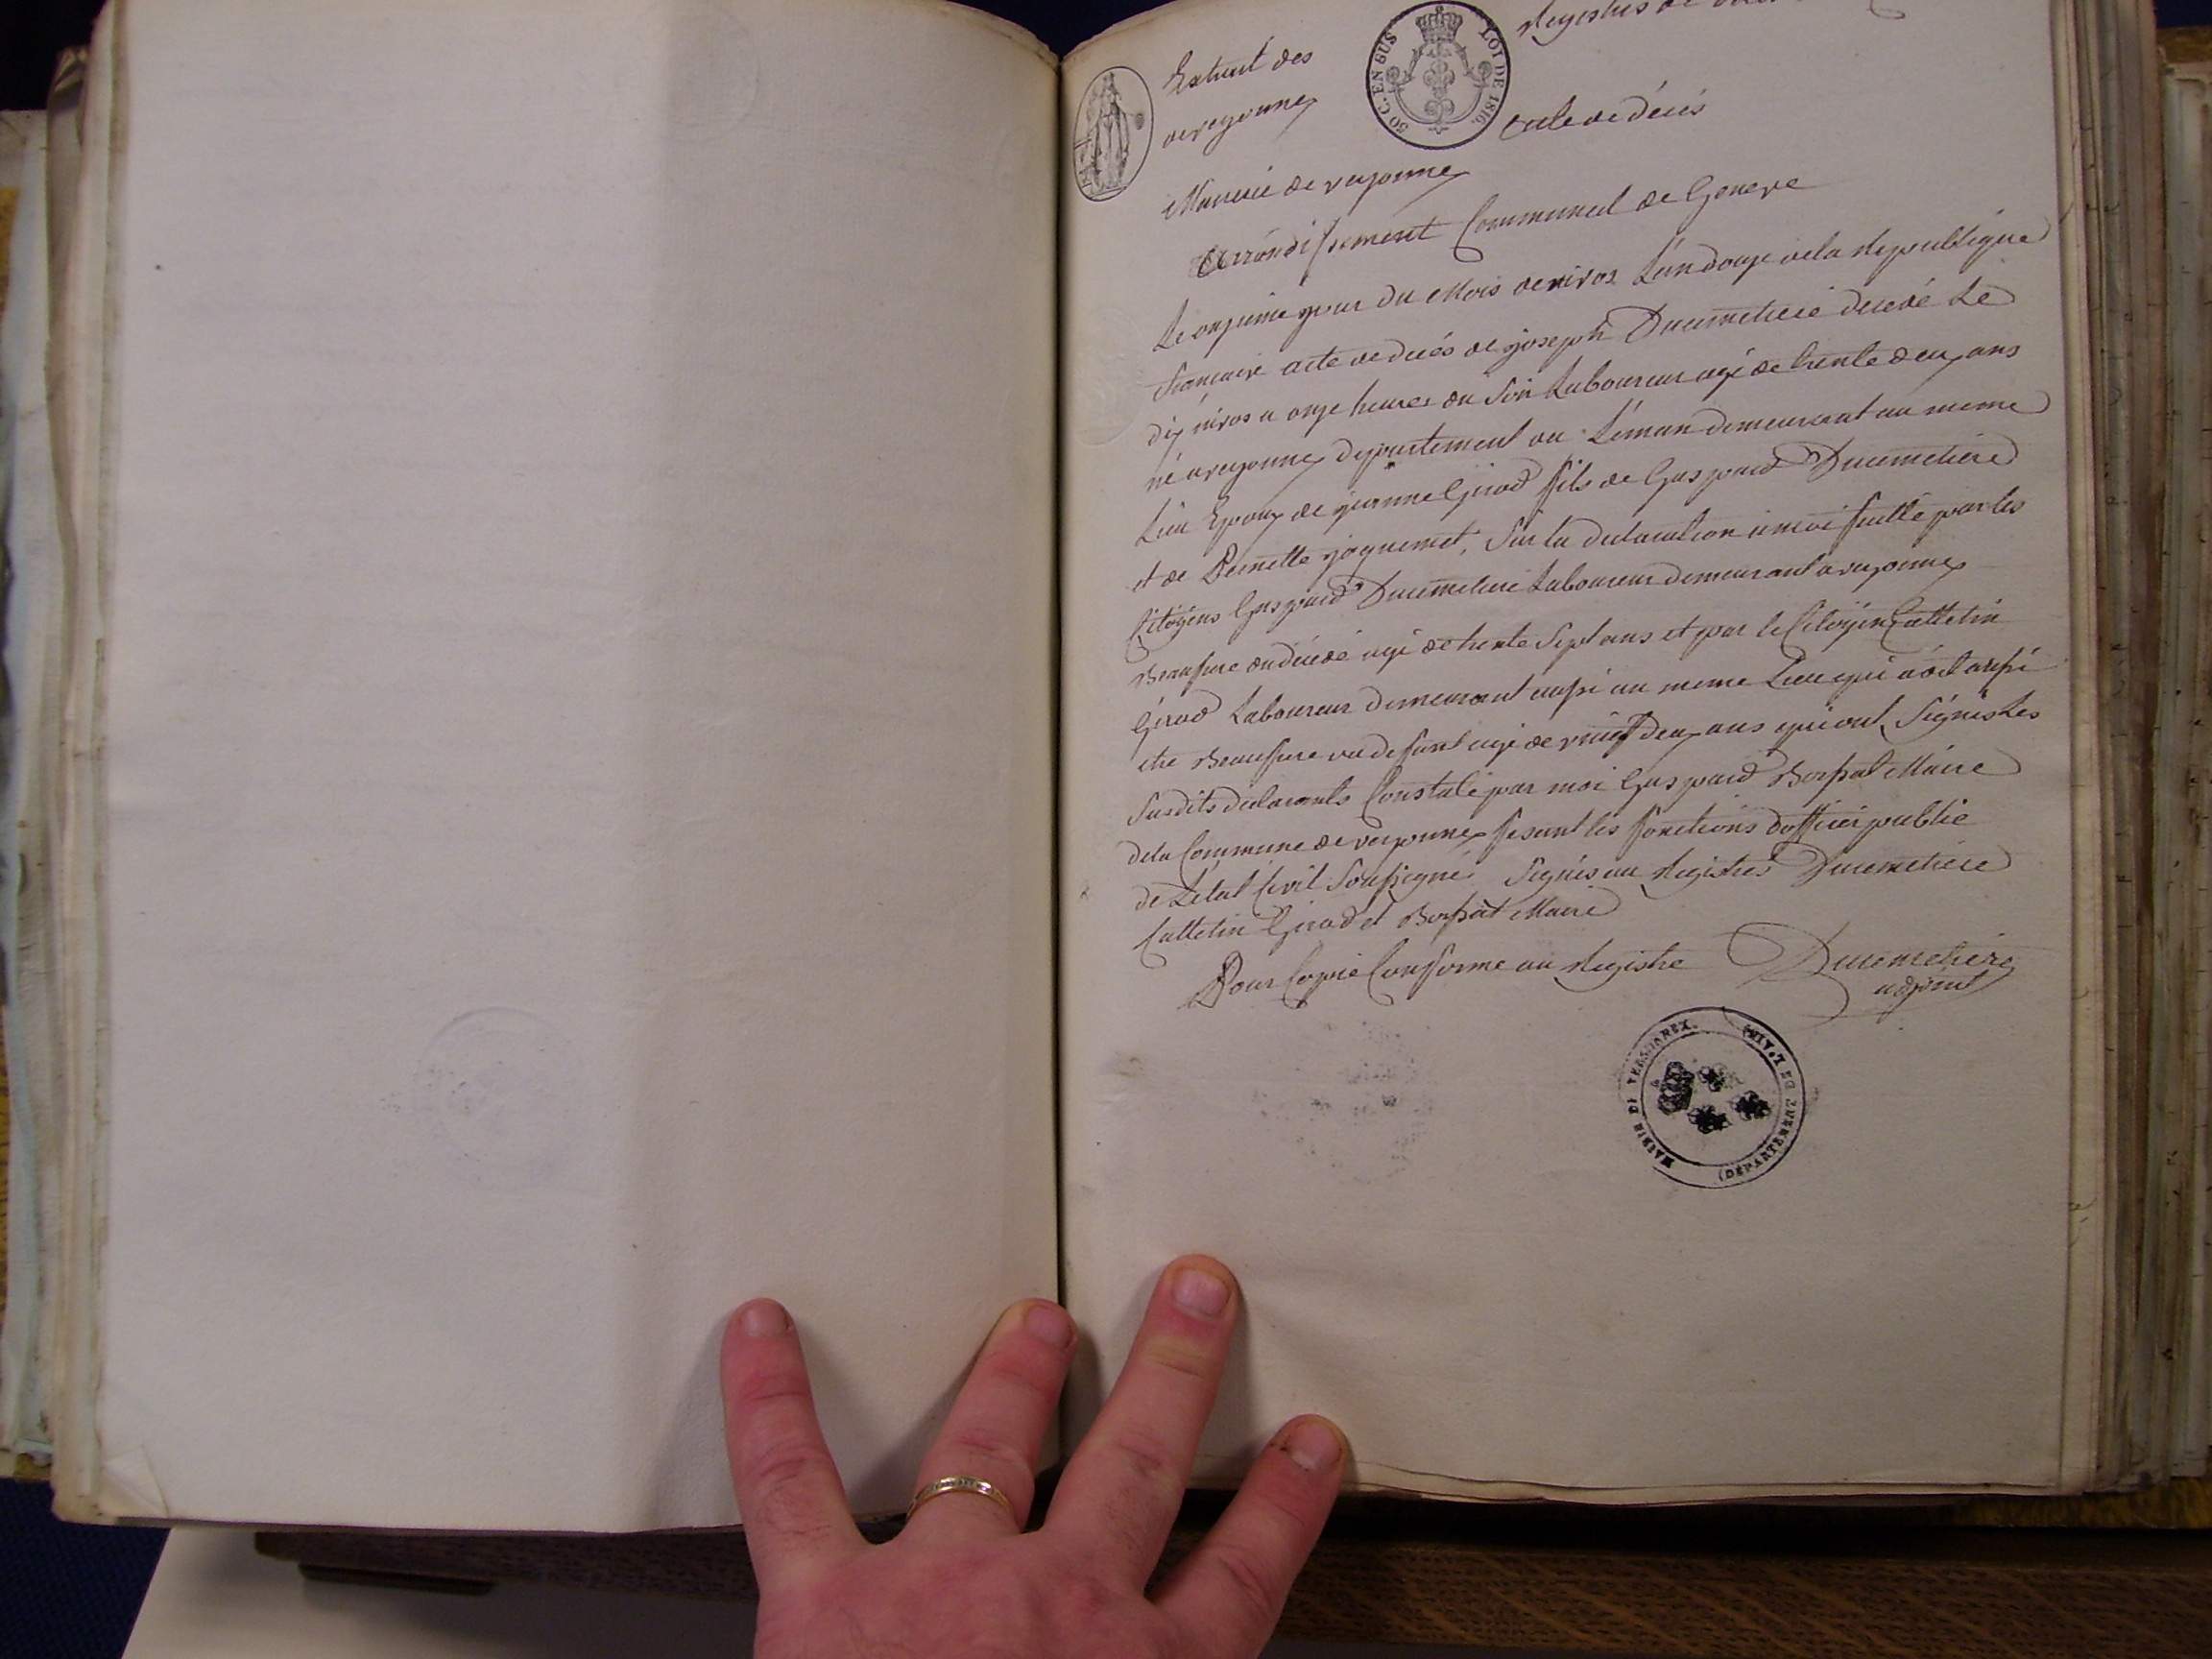 Extrait des Registres de
veryonnex
50 C. EN SUS LOI DE 1816.
acte de décés
Mairie de veryonnex
Arrondissement Communal de Geneve
Le onzieme jour du Mois de nivos L'an douze dela Republique
francaise acte de decés de joseph Ducimetiere decedé Le
dix nivos a onze heures du Soir Laboureur agé de trente deux ans
né a veryonnex departement du Léman demeurant au meme
Lieu Epoux de jeanne Girod fils de Gaspard Ducimetiere
et de Pernette jaquemet, Sur la declaration a moi faitte par les
Citoyens Gaspard Ducimetiere Laboureur demeurant a veryonnex
Beaufrere du décédé agé de trente Sept ans et par le Citoyen Cattelin
Girod Laboureur demeurant aussi au meme Lieu qui a dit aussi
etre Beaufrere du defunt agé de vingt deux ans qui ont Signés Les
Susdits declarants Constaté par moi Gaspard Maire
dela Commune de veryonnex fesant les fonctions d'officier public
de L'etat Civil Soussigné Signés au Registres Ducimetiere
Cattelin Girod et Maire
Pour Copie Conforme au Registre Ducimetiere
adjoint
MAIRIE DE VERSONNEX. (DÉPARTEMENT DE L'AIN)